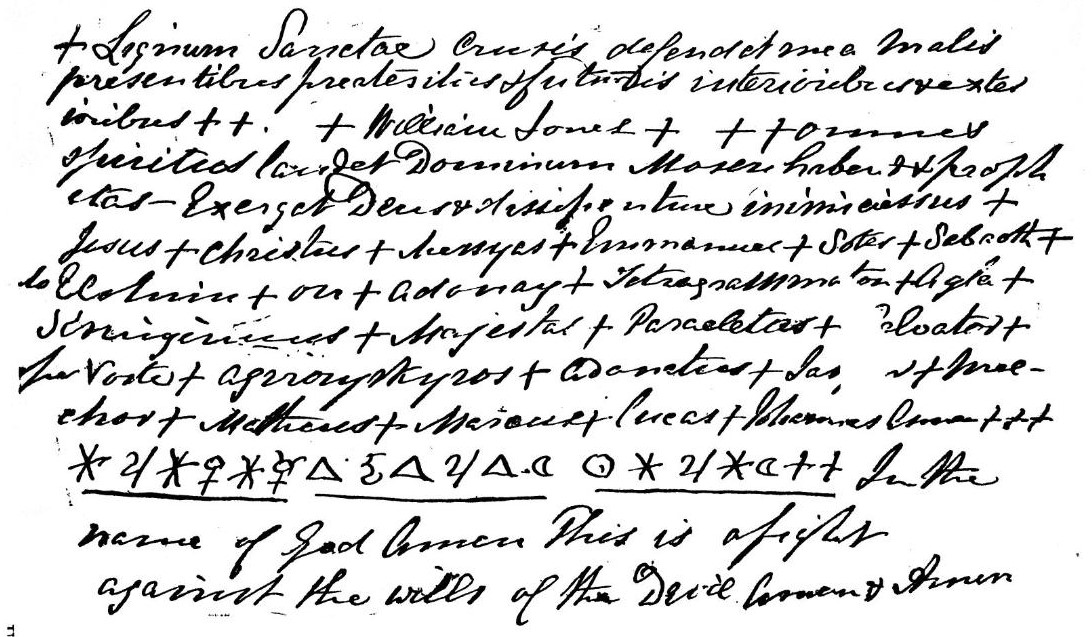 + Lignum Sanctae Crusis defendat me a Malis
presentibus preateritus & futuris interioribus & exter
ioribus + +. + William Jones + + + omnes
spiritus laudet Dominum Mosen habent & proph
etas – Exerget Deus & dissipenture inimiciessus +
Jesus + Christus + Messyas + Emmanuel + Soter + Sabaoth +
Elohim + on + Adonay + Tetragrammaton + Agla +
+ Majestas + Paracletus +
+ + Adonetus +
chor + Matheus + Marcus + Lucas + Johannes Amen + + +
* ♃ * ♀ * ☿ △ △ ♃ △ . ☾ ☉ * ♃ * ☾ + + In the
name of God Amen This is a fight
against the wills of the Devil Amen & Amen